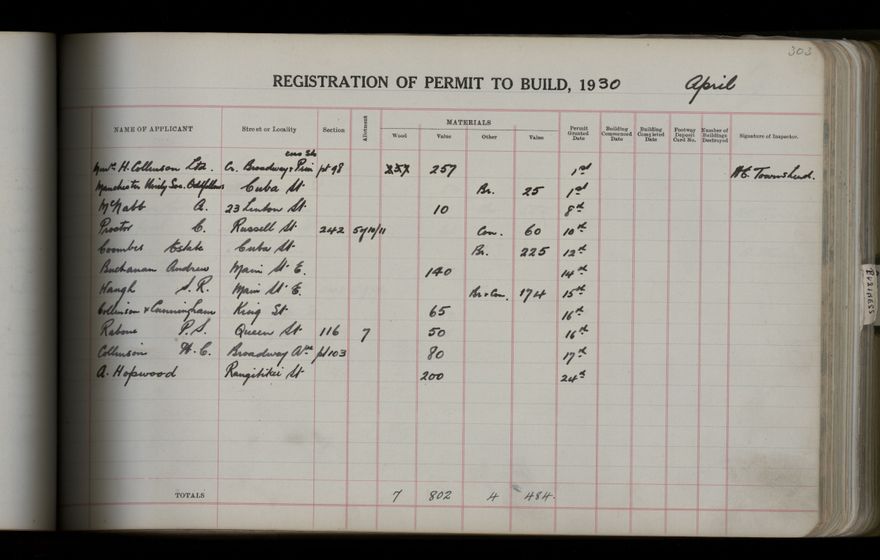 303
REGISTRATION OF PERMIT TO BUILD, 1930 April
NAME OF APPLICANT Street or Locality Section Allotment MATERIALS Wood Value Other Value Permit Granted Date Building Commenced Date Building Completed Date Footway Deposit Card No. Number of Buildings Destroyed Signature of Inspector.
H. Collinson Ltd. Cr. Broadway & pt 98 257 257 1st W.C. Townshend.
Manchester Unity Soc. Oddfellows Cuba St. Br. 25 1st
McNabb A. 23 Linton St. 10 8th
Proctor C. Russell St. 242 10/11 Con. 60 10th
Coombes Estate Cuba St Br. 225 12th
Buchanan Andrew Main St E. 140 14th
Haugh S.R. Main St E. Br & Con. 174 15th
Collinson & Cunningham King St 65 16th
Rabone P.S. Queen St 116 7 50 16th
Collinson H.C. Broadway Ave pt 103 80 17th
A. Hopwood Rangitikei St 200 24th
TOTALS 7 802 4 484.
BUSINESS